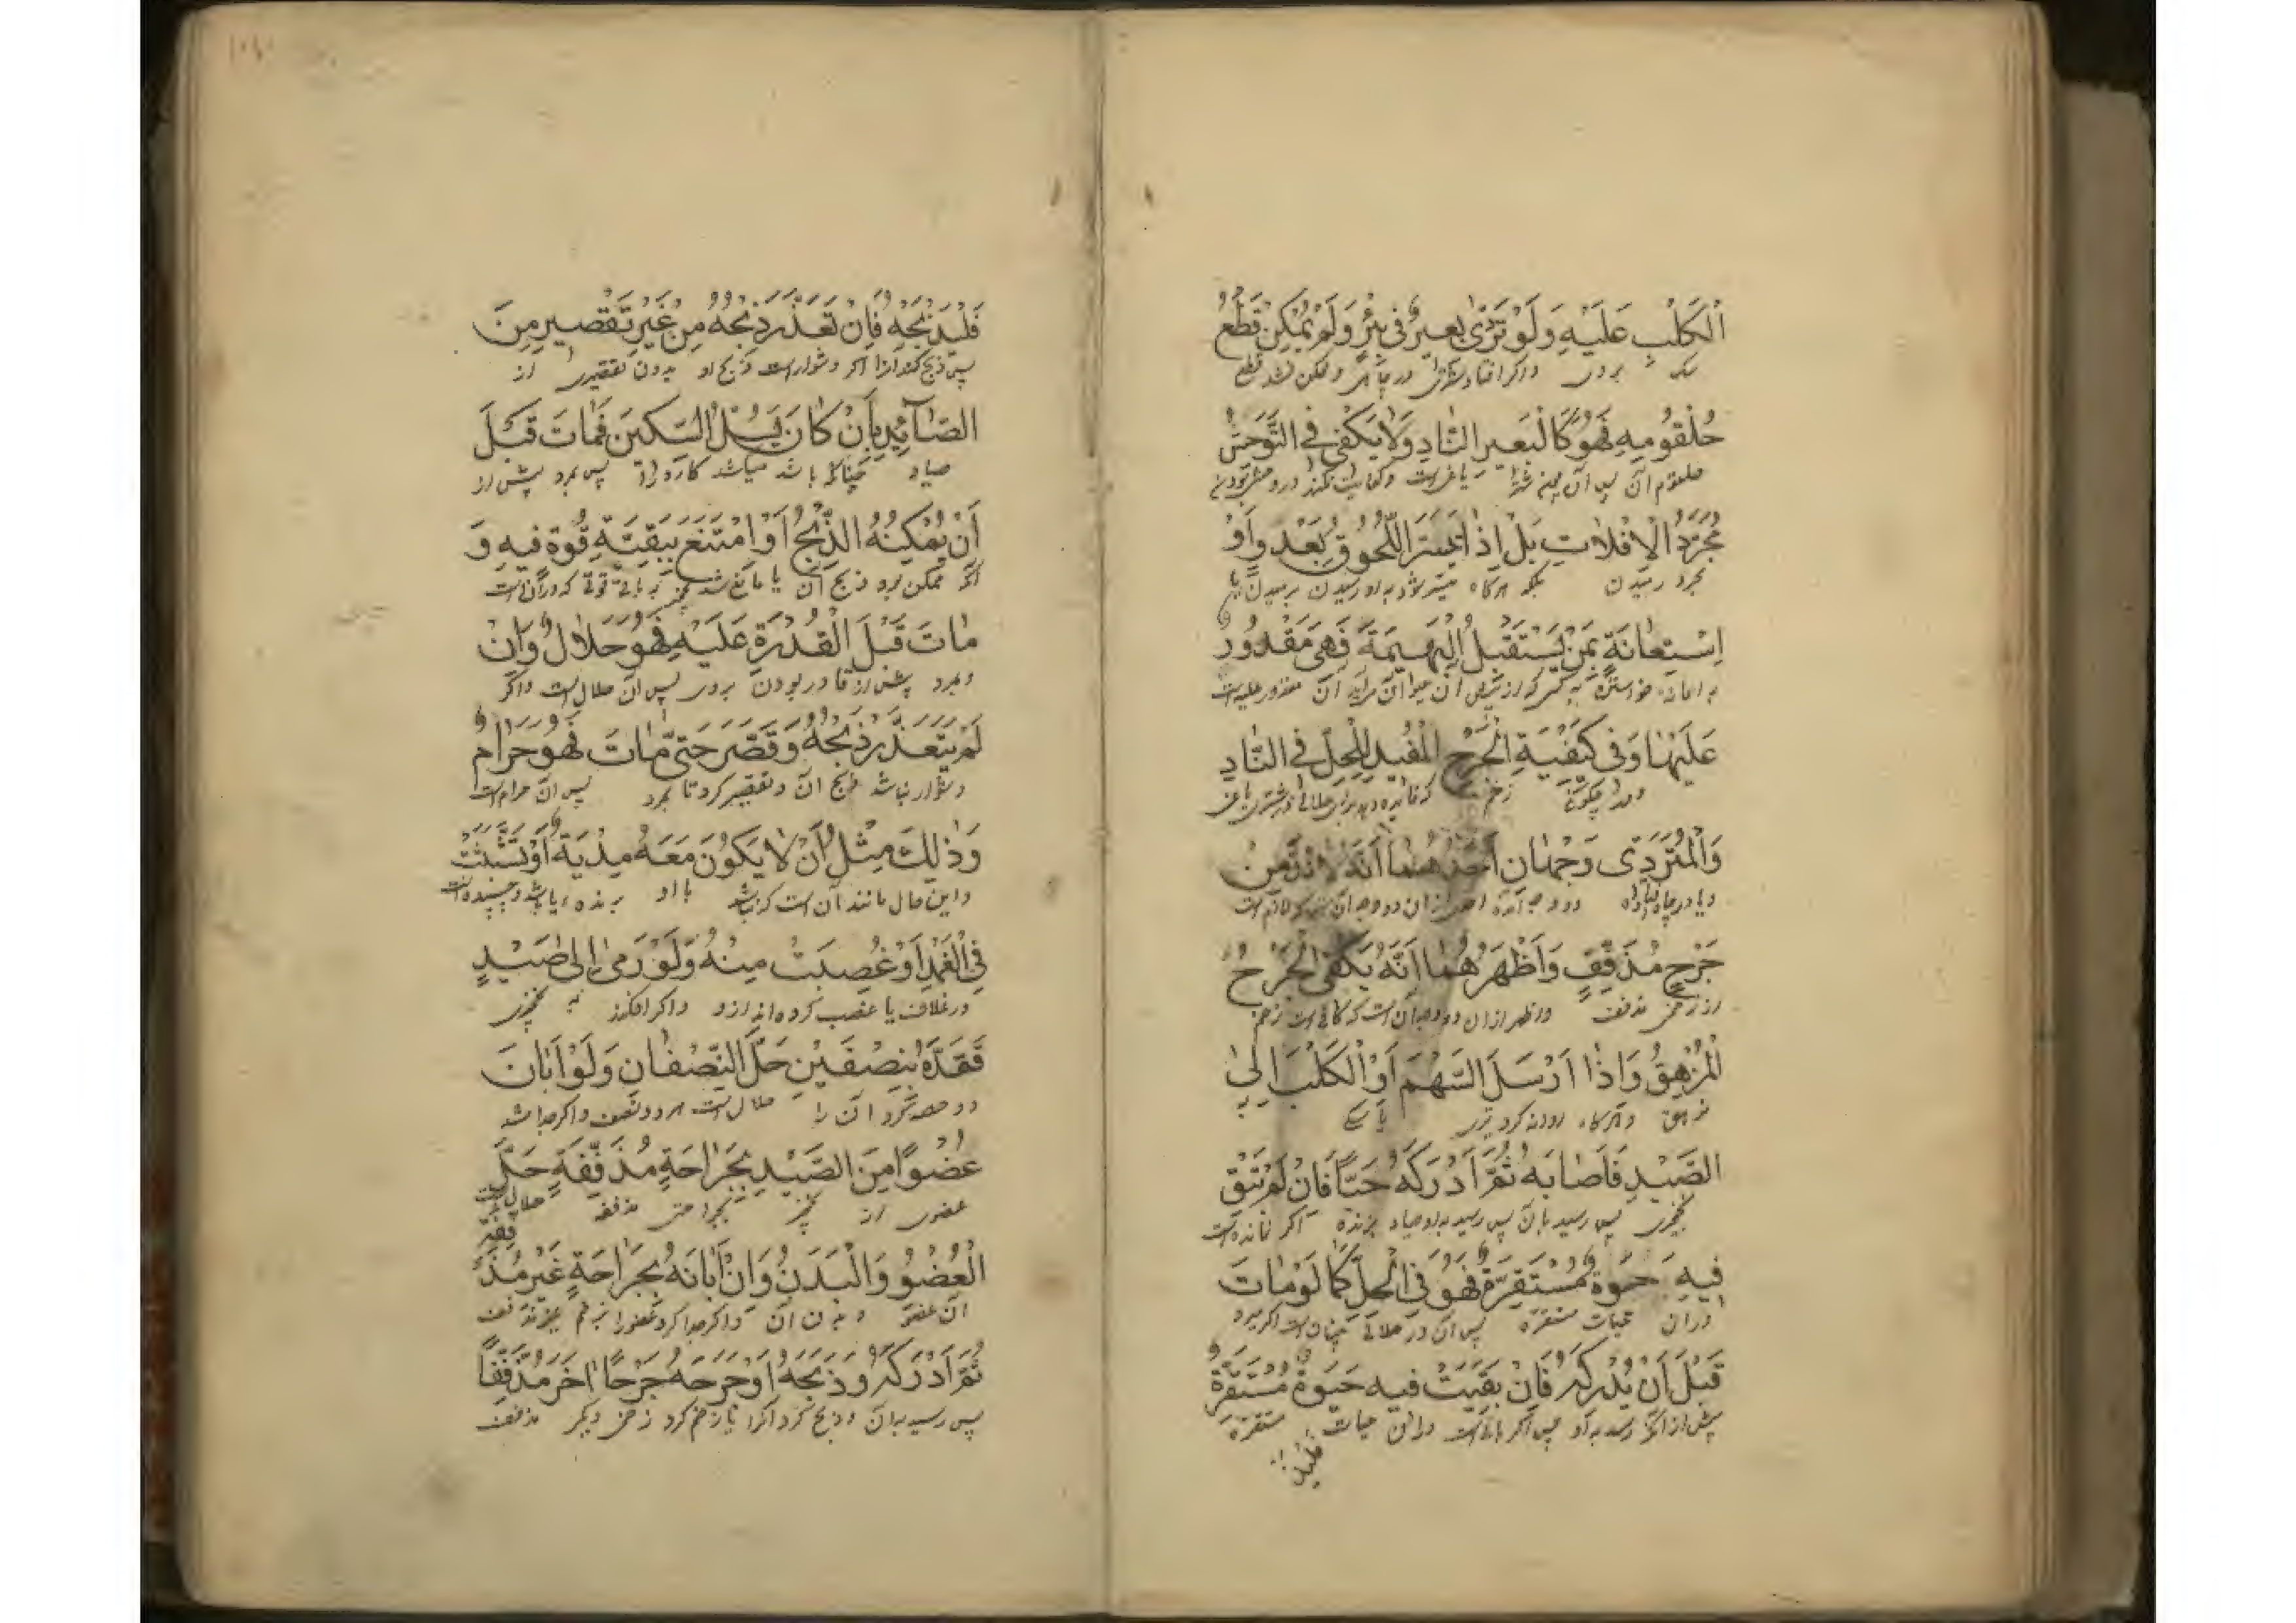 اَلْكَلْبِ عَلَيْهِ وَلَوْ تَرَدّٰى بَعِيرٌ فِى بِئْرٍ وَلَمْ يُمْكِنْ قَطْعُ
سک بروی واکر افتاد شتری در چاهی و ممکن نشد قطع
حُلْقُومِهِ فَهُوَ كَالْبَعِيرِ النَّادِ وَلَا يَكْفِى فِى التَّوَحُّشِ
حلقوم آن پس آن
مُجَرَّدُ الْاِفْلَاتِ بَلْ اِذَا تَيَسَّرَ اللُّحُوقُ بِعَدْوٍ اَوْ
بمجرد رمیدن بلکه هرکاه میسر شود به او رسیدن
اِسْتِعَانَةٍ بِمَنْ يَسْتَقْبِلُ الْبَهِيمَةَ فَهِىَ مَقْدُورٌ
عَلَيْهَا وَفِى كَيْفِيَّةِ الْجَرْحِ الْمُفِيدِ لِلْحِلِّ فِى النَّادِ
زخم که فایده دهد
وَالْمُتَرَدِّى وَجْهَانِ اَحَدُهُمَا اَنَّهُ لَا بُدَّ مِنْ
جَرْحٍ مُذَفِّفٍ وَاَظْهَرُهُمَا اَنَّهُ يَكْفِى الْجَرْحُ
از زخمی مذفف و اظهر ازان دو وجه آن است که کافی است زخم
الْمُزْهِقُ وَاِذَا اَرْسَلَ السَّهْمَ اَوْ الْكَلْبَ اِلٰى
مزهق و هرکاه روانه کرد تیری یا سکی
الصَّيْدِ فَاَصَابَهُ ثُمَّ اَدْرَكَهُ حَيًّا فَاِنْ لَمْ تَبْقَ
نخچیری پس رسید بآن پس رسید به او صیاد بزنده اکر نمانده است
فِيهِ حَيٰوةٌ مُسْتَقِرَّةٌ فَهُوَ فِى الْحِلِّ كَمَا لَوْ مَاتَ
دران حیات مستقره پس آن در حلالی چنان است اکر بمیرد
قَبْلَ اَنْ يُدْرِكَهُ فَاِنْ بَقِيَتْ فِيهِ حَيٰوةٌ مُسْتَقِرَّةٌ
پیش از آنکه رسد به او پس اکر باقی است دران حیات مستقره
فليذ
فَلْيَذْبَحْهُ فَاِنْ تَعَذَّرَ ذَبْحُهُ مِنْ غَيْرِ تَقْصِيرٍ مِنَ
پس ذبح کند آنرا اکر دشوار است ذبح او بدون تقصیری از
الصَّآئِدِ بِاَنْ كَانَ يَسُلُّ السِّكِّينَ فَمَاتَ قَبْلَ
صیاد چنانکه باشد میکشد کارد را پس بمرد پیش از
اَنْ يُمْكِنَهُ الذَّبْحُ اَوْ اِمْتَنَعَ بِبَقِيَّةِ قُوَّةٍ فِيهِ وَ
آنکه ممکن بود ذبح آن یا مانع شد نخچیر به باقی قوتی که دران است
مَاتَ قَبْلَ الْقُدْرَةِ عَلَيْهِ فَهُوَ حَلَالٌ وَاِنْ
و بمرد پیش از قادر بودن بروی پس آن حلال است واکر
لَمْ يَتَعَذَّرْ ذَبْحُهُ وَقَصَّرَ حَتّٰى مَاتَ فَهُوَ حَرَامٌ
دشوار نباشد ذبح آن و تقصیر کرد تا بمرد پس آن حرام است
وَذٰلِكَ مِثْلُ اَنْ لَا يَكُونَ مَعَهُ مِدْيَةٌ اَوْ تَشَبَّثَتْ
و این حال مانند آن است که نباشد با او برنده یا باشد و چسپیده است
فِى الْغِمْدِ اَوْ غُصِبَتْ مِنْهُ وَلَوْ رَمٰى اِلٰى صَيْدٍ
در غلاف یا غصب کرده اند ازو واکر افکند به نخچیری
فَقَدَّهُ بِنِصْفَيْنِ حَلَّ النِّصْفَانِ وَلَوْ اَبَانَ
دو حصه کرد آن را حلال است هر دو نصف واکر جدا شد
عُضْوًا مِنَ الصَّيْدِ بِجَرَاحَةٍ مُذَفِّفَةٍ حَلَّ
عضوی از نخچیر بجراحتی مذففه حلال است
الْعُضْوُ وَالْبَدَنُ وَاِنْ اَبَانَهُ بِجَرَاحَةٍ غَيْرِ مُذَفِّفَةٍ
آن عضو و بدن آن واکر جدا کرد عضو را بزخم غیر مذفف
ثُمَّ اَدْرَكَهُ وَذَبَحَهُ اَوْ جَرَحَهُ جَرْحًا اٰخَرَ مُذَفِّفًا
پس رسید بدان و ذبح کرد آنرا یا زخم کرد زخمی دیکر مذفف